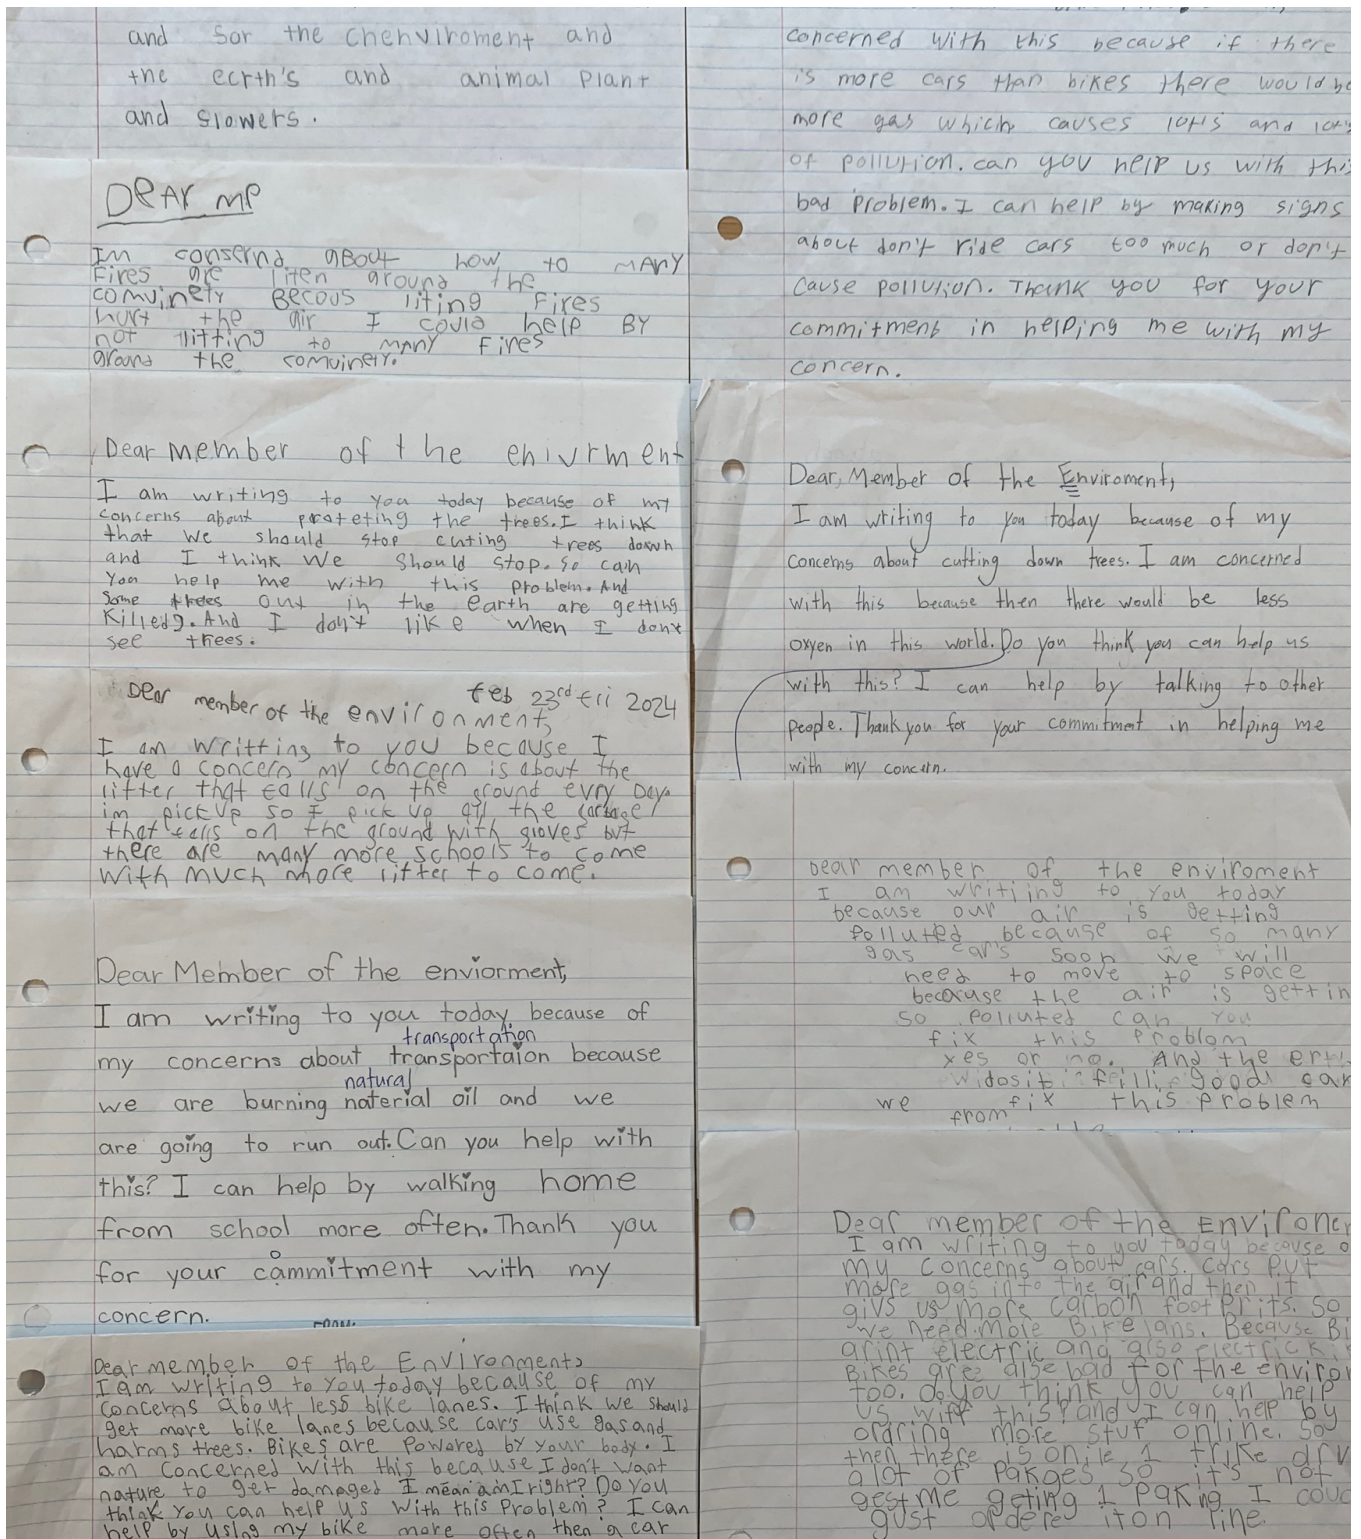 and sor the chenviroment and
the ecrth's and animal Plant
and slowers.
Dear me
Im conserna about how to MANY
Fires are liten around the
comuinety Becous liting Fires
hurt the air I could help BY
not litting to MANY Fires
ground the comuinety.
Dear Member of the enivrment
I am writing to you today because of my
concerns about proteting the trees. I think
that we should stop cuting trees down
and I think We should stop. so can
You help me with this problem. And
Some trees out in the earth are getting
Killedg. And I don't like when I don't
see trees.
Dear member of the environment,
feb 23rd fri 2024
I am writting to you because I
have a concern my concern is about the
litter that falls on the ground evry Day.
im pick up so I pick up all the garbage
that falls on the ground with gloves but
there are many more schools to come
with much more litter to come.
Dear Member of the enviorment,
I am writing to you today because of
transportation
my concerns about transportaion because
natural
we are burning naterial oil and we
are going to run out. Can you help with
this? I can help by walking home
from school more often. Thank you
o
for your cammitment with my
concern.
Dear member of the Environment,
I am writing to You today because of my
concerns about less bike lanes. I think we should
get more bike lanes because car's use gas and
harms trees. Bikes are Powered by your body. I
am concerned with this because I don't want
nature to get damaged I mean am I right? Do you
think You can help us with this Problem? I can
help by using my bike more often then a car
concerned with this because if there
is more cars than bikes there would be
more gas which causes lots and lots
of pollution. can you help us with this
bad problem. I can help by making signs
about don't ride cars too much or don't
cause pollution. Thank you for your
commitment in helping me with my
concern.
Dear, Member of the Enviroment,
I am writing to you today because of my
concerns about cutting down trees. I am concerned
with this because then there would be less
oxyen in this world. Do you think you can help us
with this? I can help by talking to other
people. Thank you for your commitment in helping me
with my concern.
Dear member of the enviroment
I am writiing to you today
because our air is getting
Polluted because of so many
gas car's soon we will
need to move to space
because the air is gettin
so polluted can you
fix this problom
yes or no. And the
good can
we fix this problem
from
Dear member of the Environ
I am writing to you today because o
my concerns about cars. cars Put
more gas into the air and then it
givs us more carbon foot Prits. So
we need more Bike lans. Because Bi
arint electric and also electric
Bikes are alse bad for the enviro
too. do you think you can help
us with this? and I can help by
ordring more stuf online. So
then there is onle 1 trike driv
a lot of Pakges so it's not
gest me geting 1 Paking I coud
gust ordere it on line